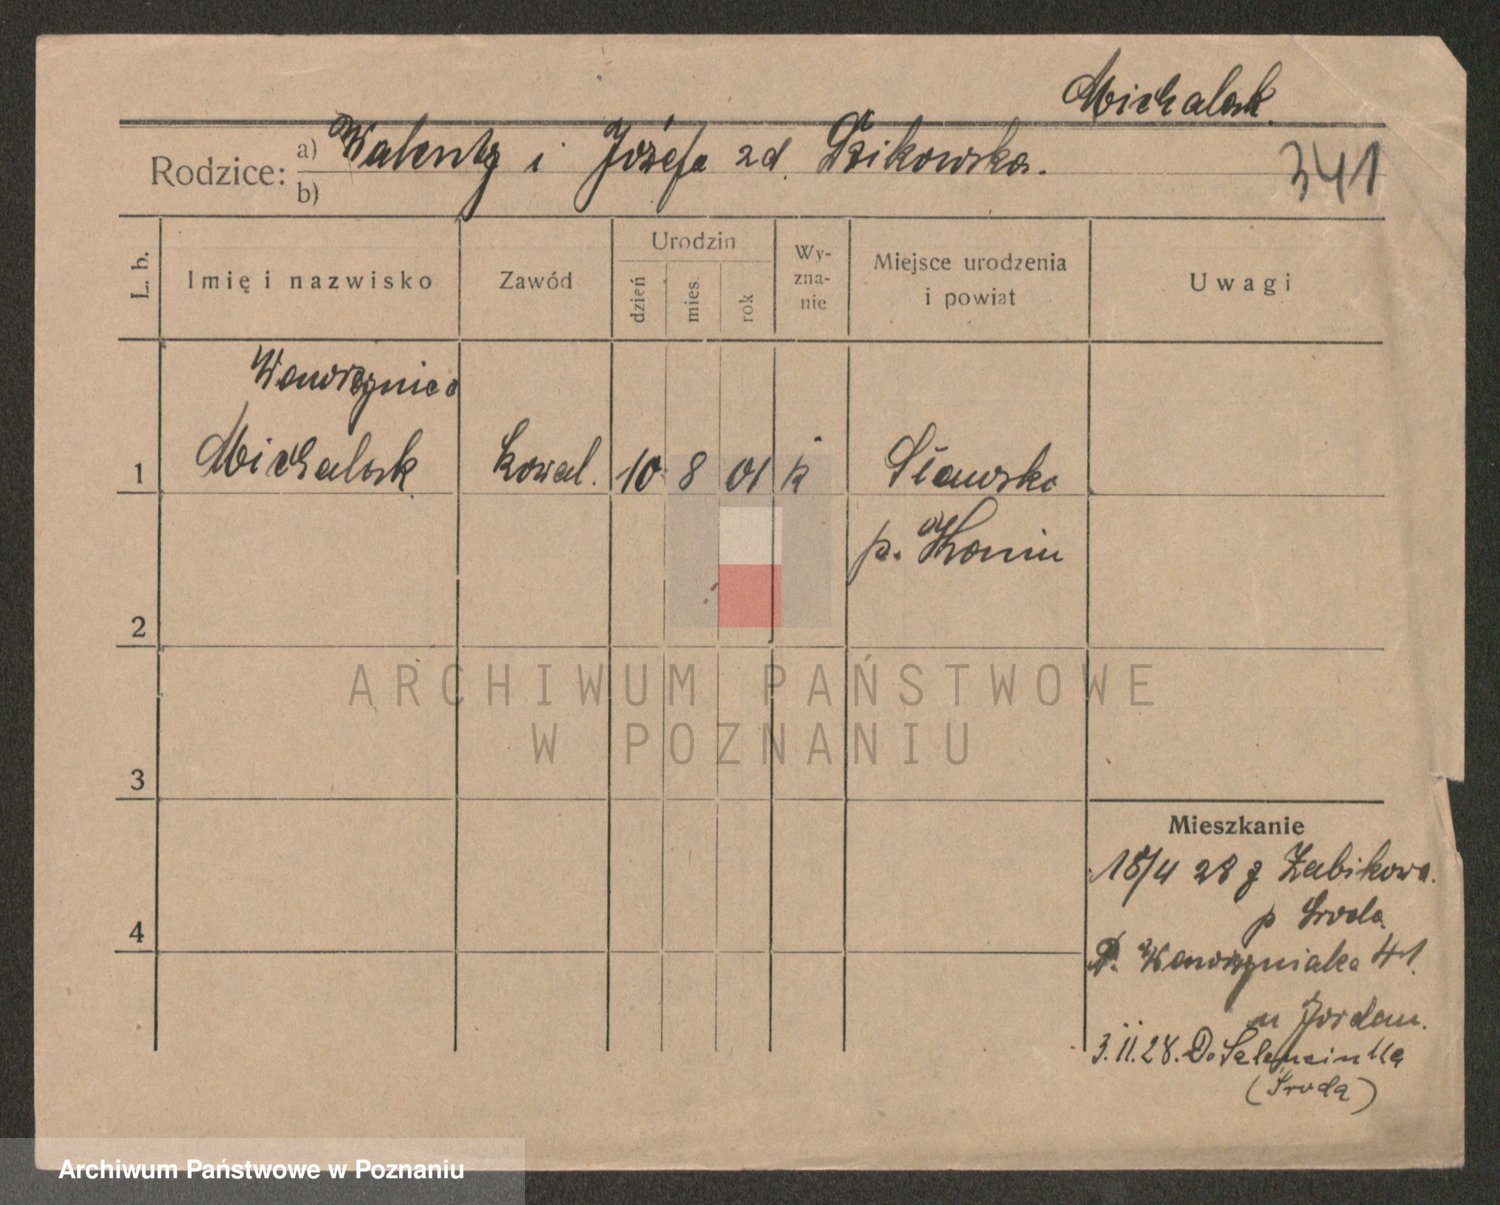 Michalak.
Rodzice: a) Walenty i Józefa zd. Dzikowska.
b)
341
L. b.
Imię i nazwisko
Zawód
Urodzin
dzień
mies.
rok
Wy-
zna-
nie
Miejsce urodzenia
i powiat
Uwagi
Wawrzyniec
1 Michalak kowal. 10 8 01 k Sławsko
p. Konin
2
3
4
ARCHIWUM PAŃSTWOWE
W POZNANIU
Mieszkanie
18/4 28 z Żabikowo.
p Środa.
D. Wawrzyniaka 41.
u Jordan.
3.11.28. Do
(Środa)
Archiwum Państwowe w Poznaniu